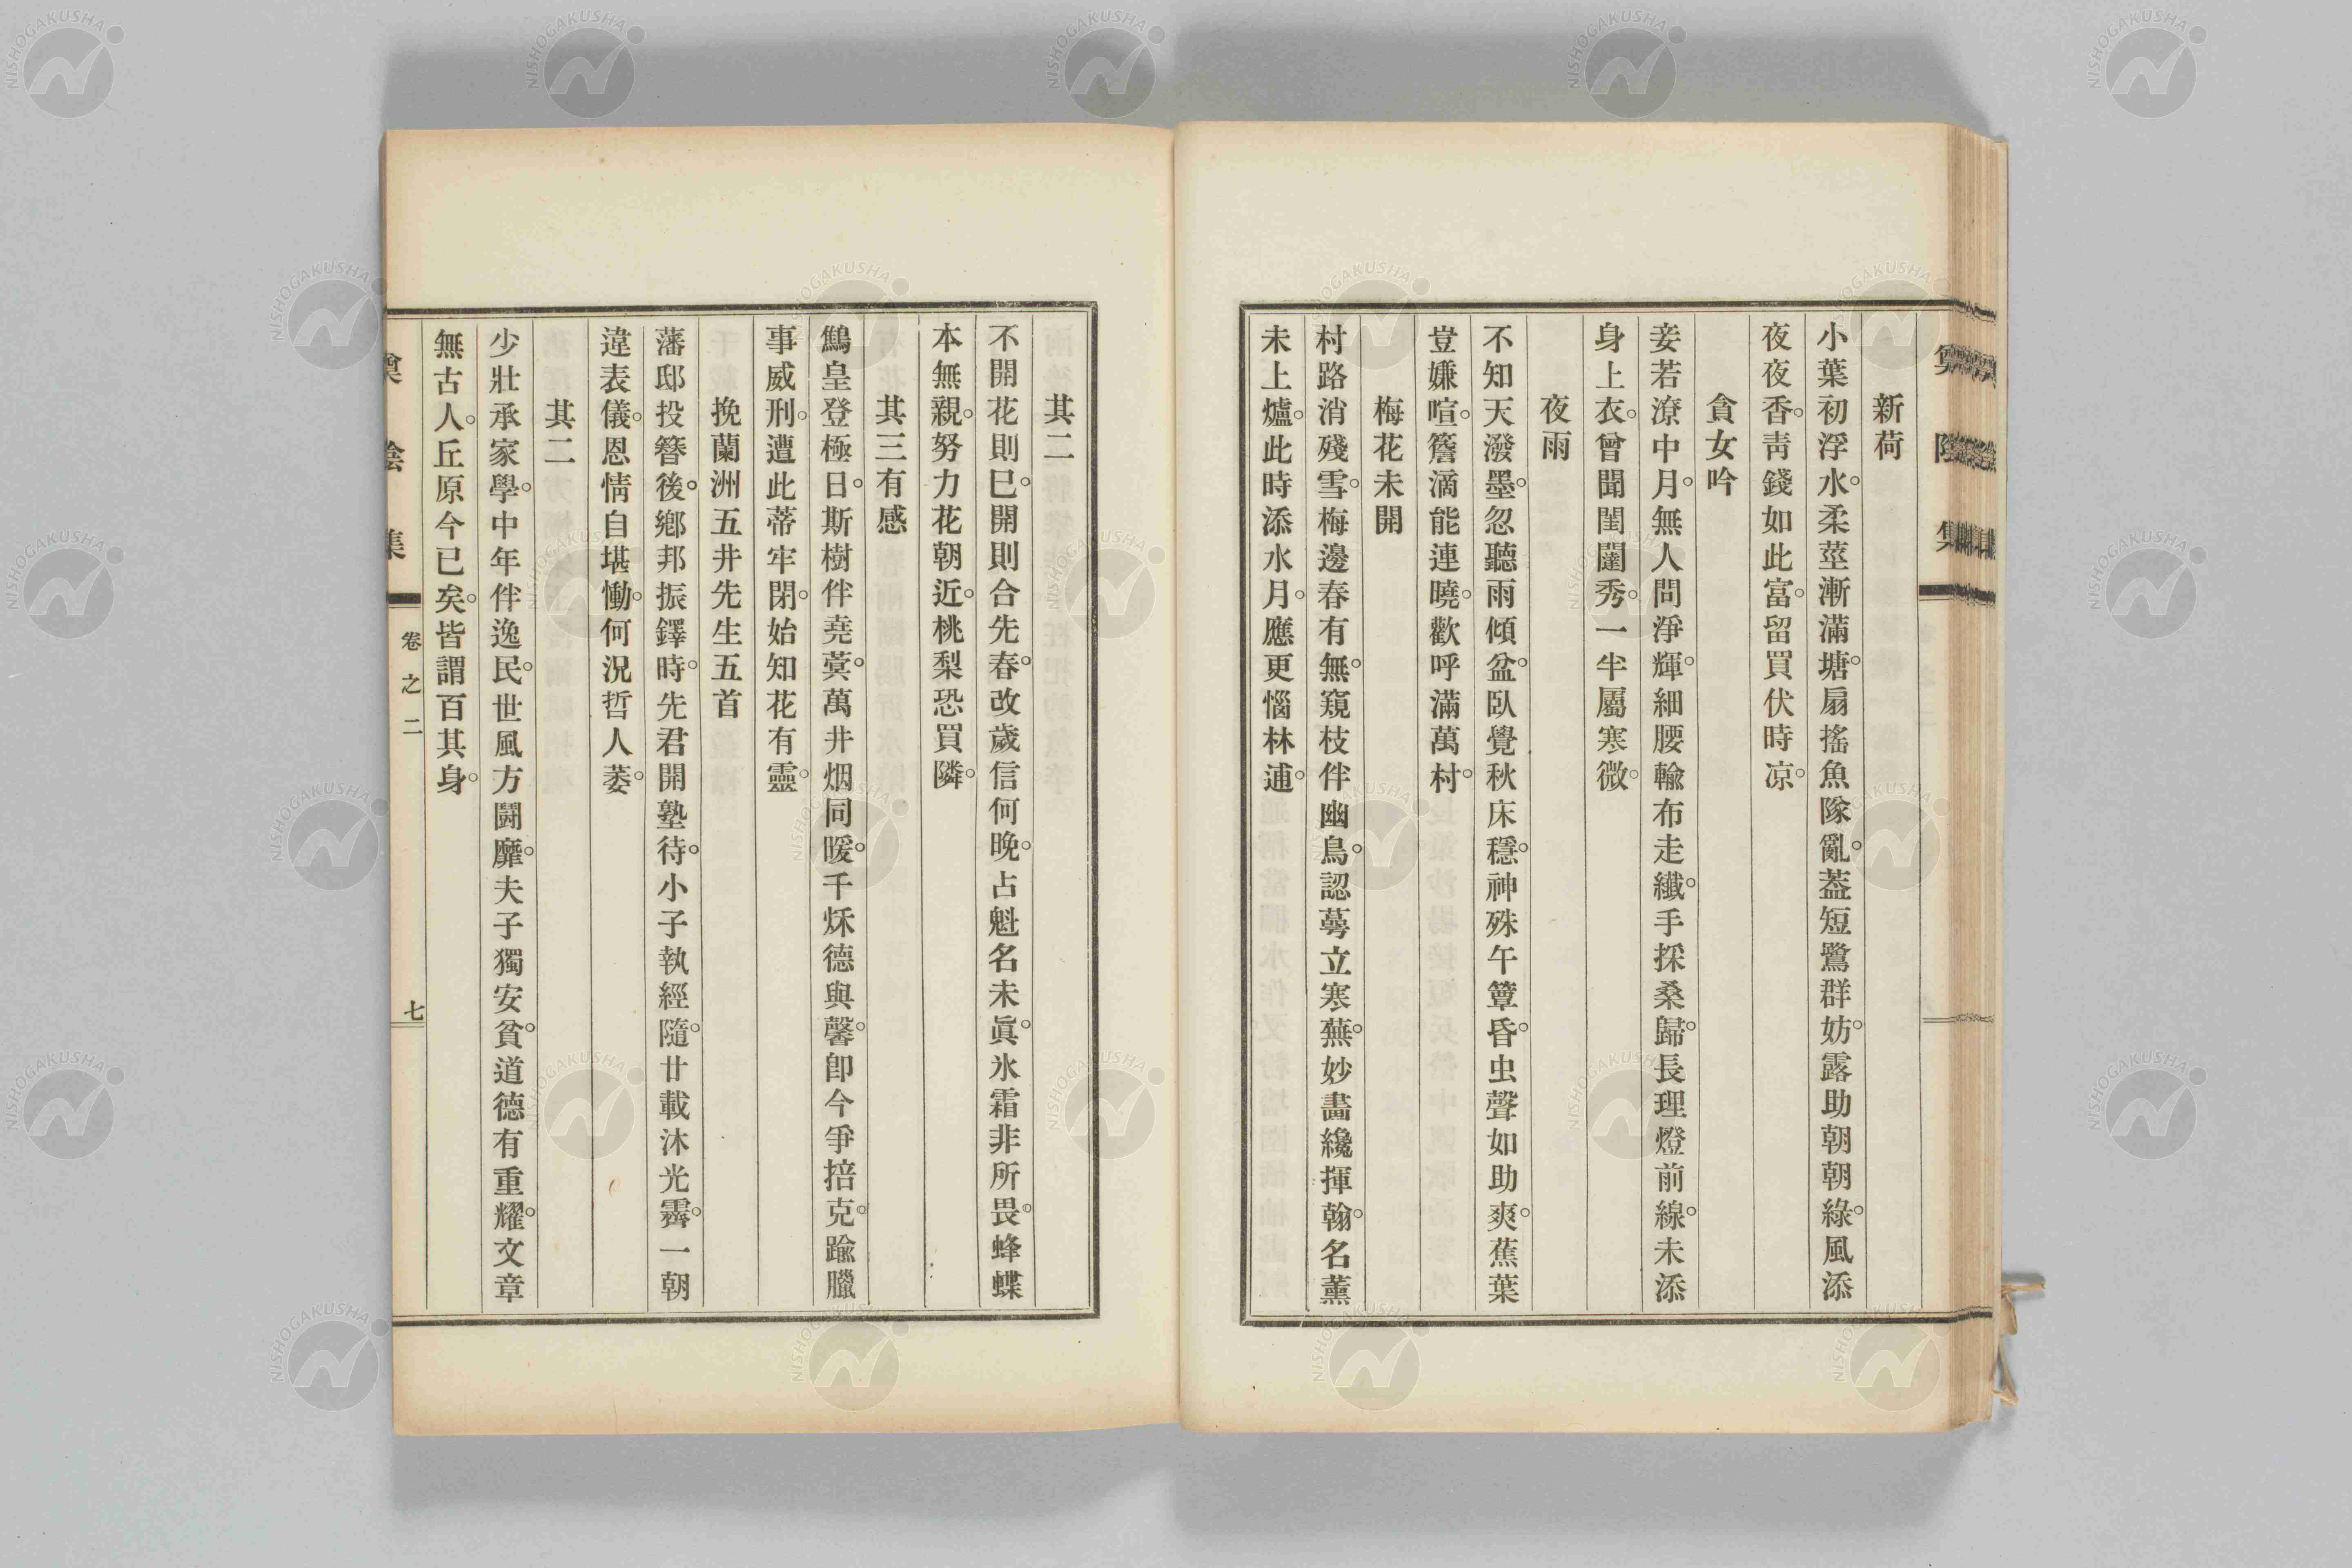 新荷
小葉初浮水。柔莖漸滿塘。扇搖魚隊亂。蓋短鷺群妨。露助朝朝綠。風添
夜夜香。靑錢如此富。留買伏時凉。
貪女吟
妾若潦中月。無人問淨輝。細腰輸布走。纖手採桑歸。長理燈前線。未添
身上衣。曾聞閨闥秀。一半屬寒微。
夜雨
不知天潑墨。忽聽雨傾盆。臥覺秋床穩。神殊午簟昏。虫聲如助爽。蕉葉
豈嫌喧。簷滴能連曉。歡呼滿萬村。
梅花未開
村路消殘雪。梅邊春有無。窺枝伴幽鳥。認萼立寒蕪。妙畵纔揮翰。名薰
未上爐。此時添水月。應更惱林逋。
其二
不開花則已。開則合先春。改歲信何晚。占魁名未眞。氷霜非所畏。蜂蝶
本無親。努力花朝近。桃梨恐買隣。
其三有感
鷦皇登極日。斯樹伴堯蓂。萬井烟同暖。千秌德與馨。卽今爭掊克。踰臘
事威刑。遭此蒂牢閉。始知花有靈。
挽蘭洲五井先生五首
藩邸投簪後。鄕邦振鐸時。先君開塾待。小子執經隨。廿載沐光霽。一朝
違表儀。恩情自堪慟。何況哲人萎。
其二
少壯承家學。中年伴逸民。世風方鬪靡。夫子獨安貧。道德有重耀。文章
無古人。丘原今已矣。皆謂百其身。
奠陰集 卷之二 七
NISHOGAKUSHA